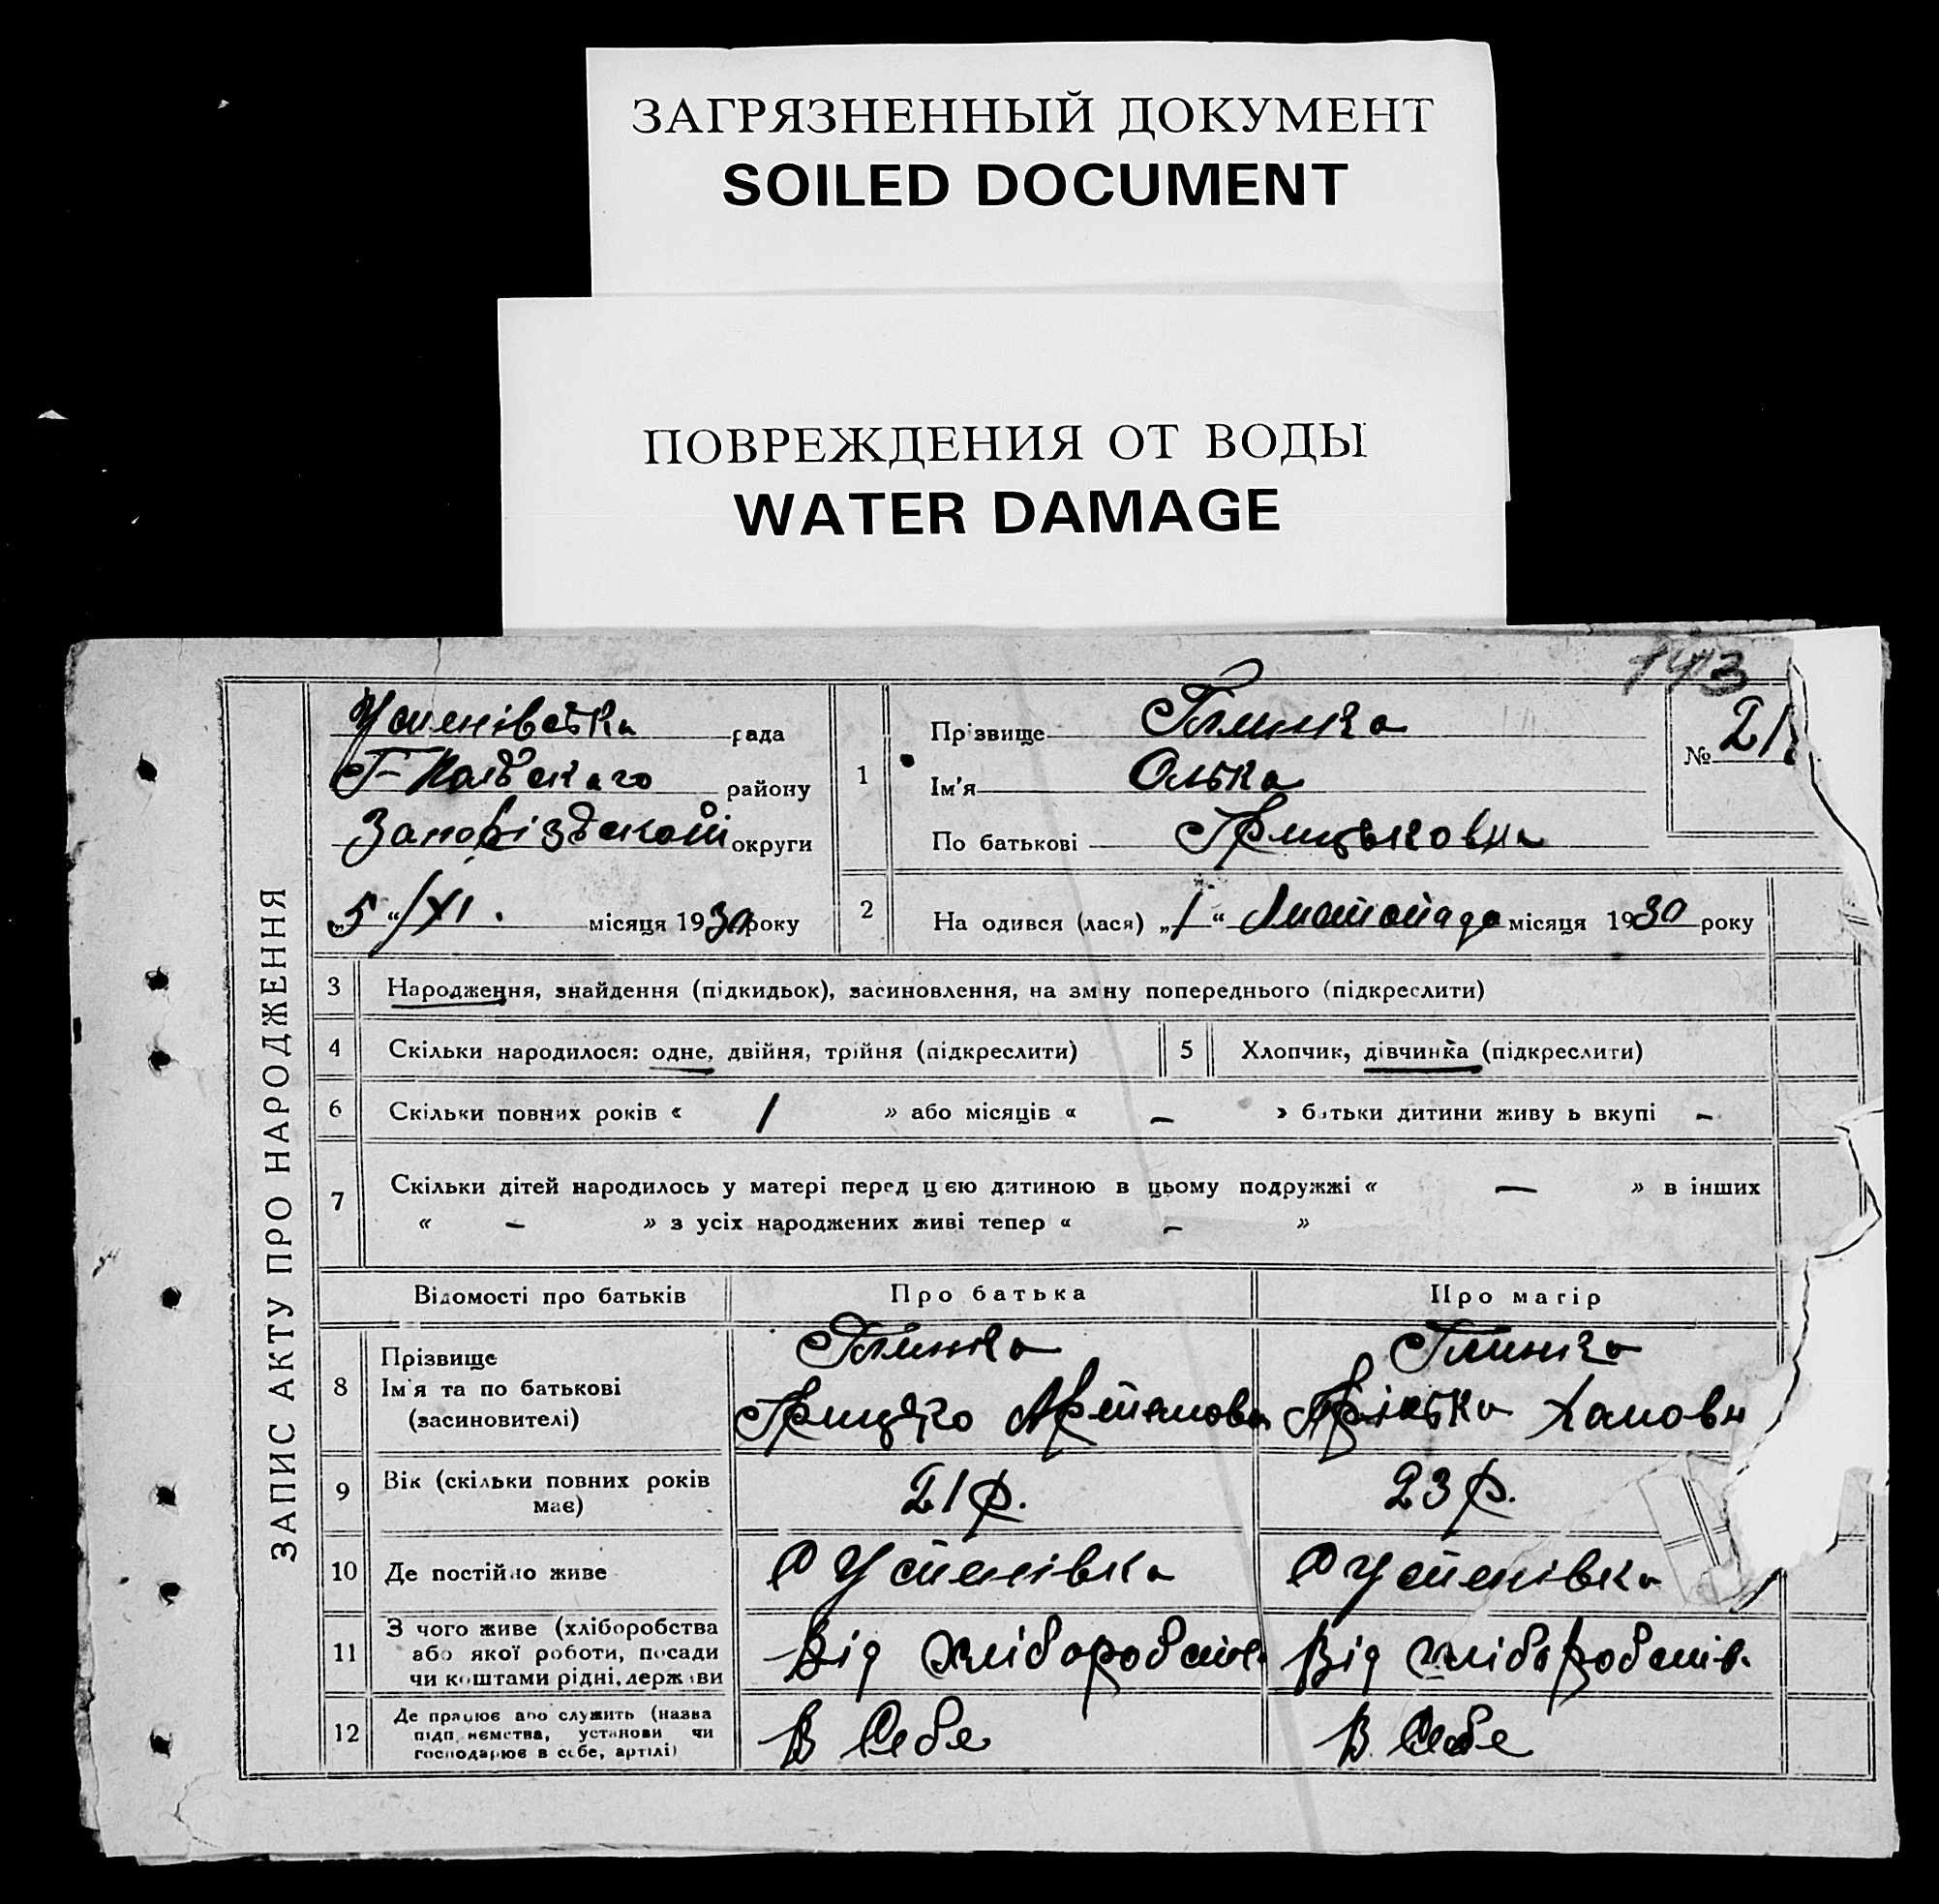 ЗАГРЯЗНЕННЫЙ ДОКУМЕНТ
SOILED DOCUMENT
ПОВРЕЖДЕНИЯ ОТ ВОДЫ
WATER DAMAGE
143
ЗАПИС АКТУ ПРО НАРОДЖЕННЯ
Успенівська рада
Г-Польского району
Запорізської округи
„5“/XI. місяця 1930 року
1
Прізвище Глинка
Ім'я Олька
По батькові Грицьковна
№ 21
2 На одився (лася) „1“ Листопада місяця 1930 року
3 Народження, знайдення (підкидьок), засиновлення, на зміну попереднього (підкреслити)
4 Скільки народилося: одне, двійня, трійня (підкреслити) 5 Хлопчик, дівчинка (підкреслити)
6 Скільки повних років « 1 » або місяців « – » батьки дитини живу ь вкупі –
7 Скільки дітей народилось у матері перед цєю дитиною в цьому подружжі « — » в інших
« – » з усіх народжених живі тепер « – »
Відомості про батьків Про батька Про матір
8 Прізвище Глинка Глинка
Ім'я та по батькові
(засиновителі) Грицько Артемови Хамовн
9 Вік (скільки повних років має) 21 р. 23 р.
10 Де постійно живе с Успенівка с Успенівка
11 З чого живе (хліборобства
або якої роботи, посади
чи коштами рідні, держави Від хліборобств. Від хліборобств.
12 Де працює або служить (назва
підп иємства, установи чи
господарює в себе, артілі) В Себе В Себе